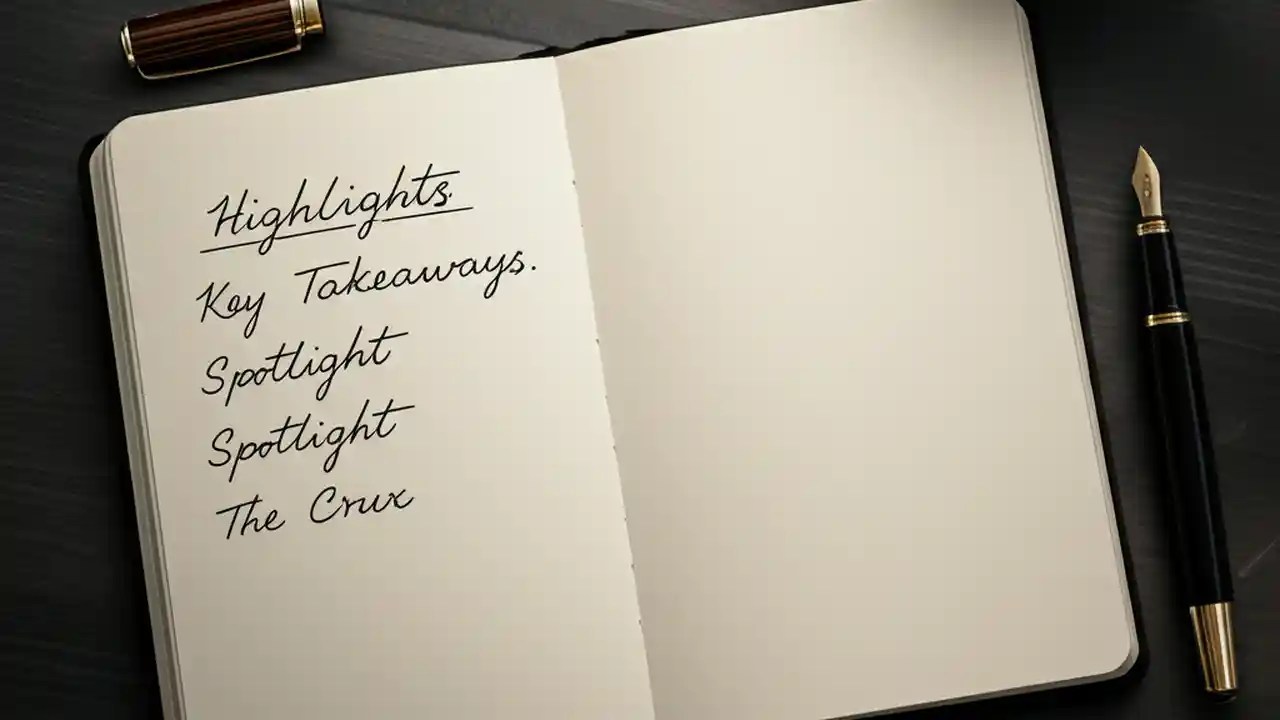 Highlights.
Key Takeaways.
Spotlight
Spotlight
The Crux